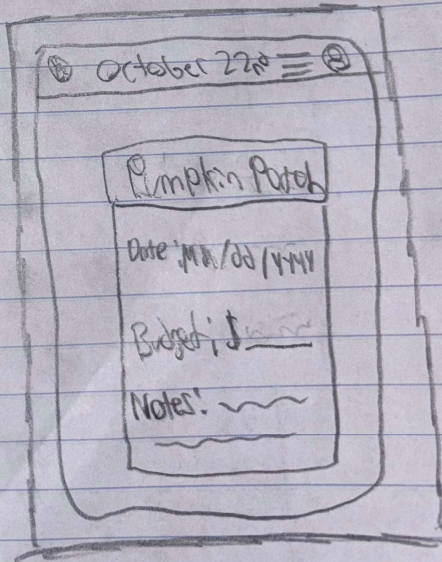 October 22nd
Pumpkin Patch
Date: MM/dd/yyyy
Budget: $
Notes: